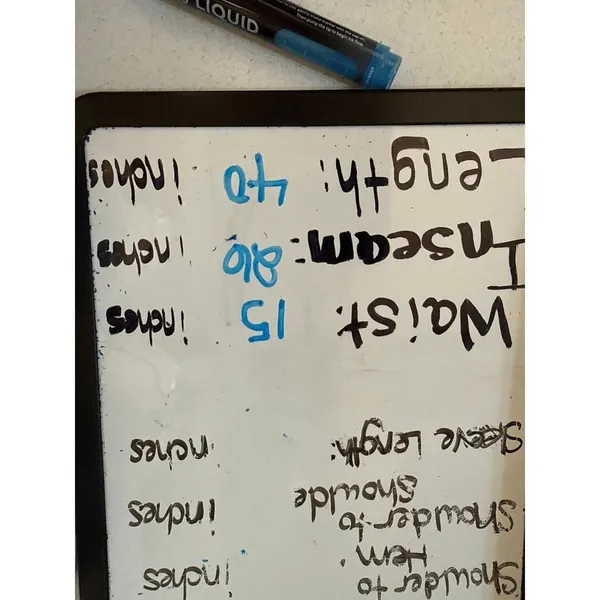 Shoulder to inches
Hem
Shoulder to inches
Shoulde
Sleeve Length: inches
Waist: 15 inches
Inseam: 26 inches
Length: 40 inches
LIQUID